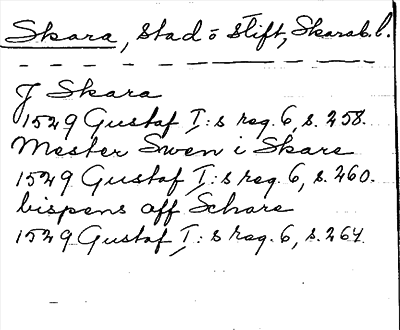 Skara, stad o stift, Skarab.l.
J Skara
1529 Gustaf I:s reg. 6, s. 258.
Mester Swen i Skare
1529 Gustaf I:s reg. 6, s. 260.
bispens aff Schare
1529 Gustaf I:s reg. 6, s. 264.